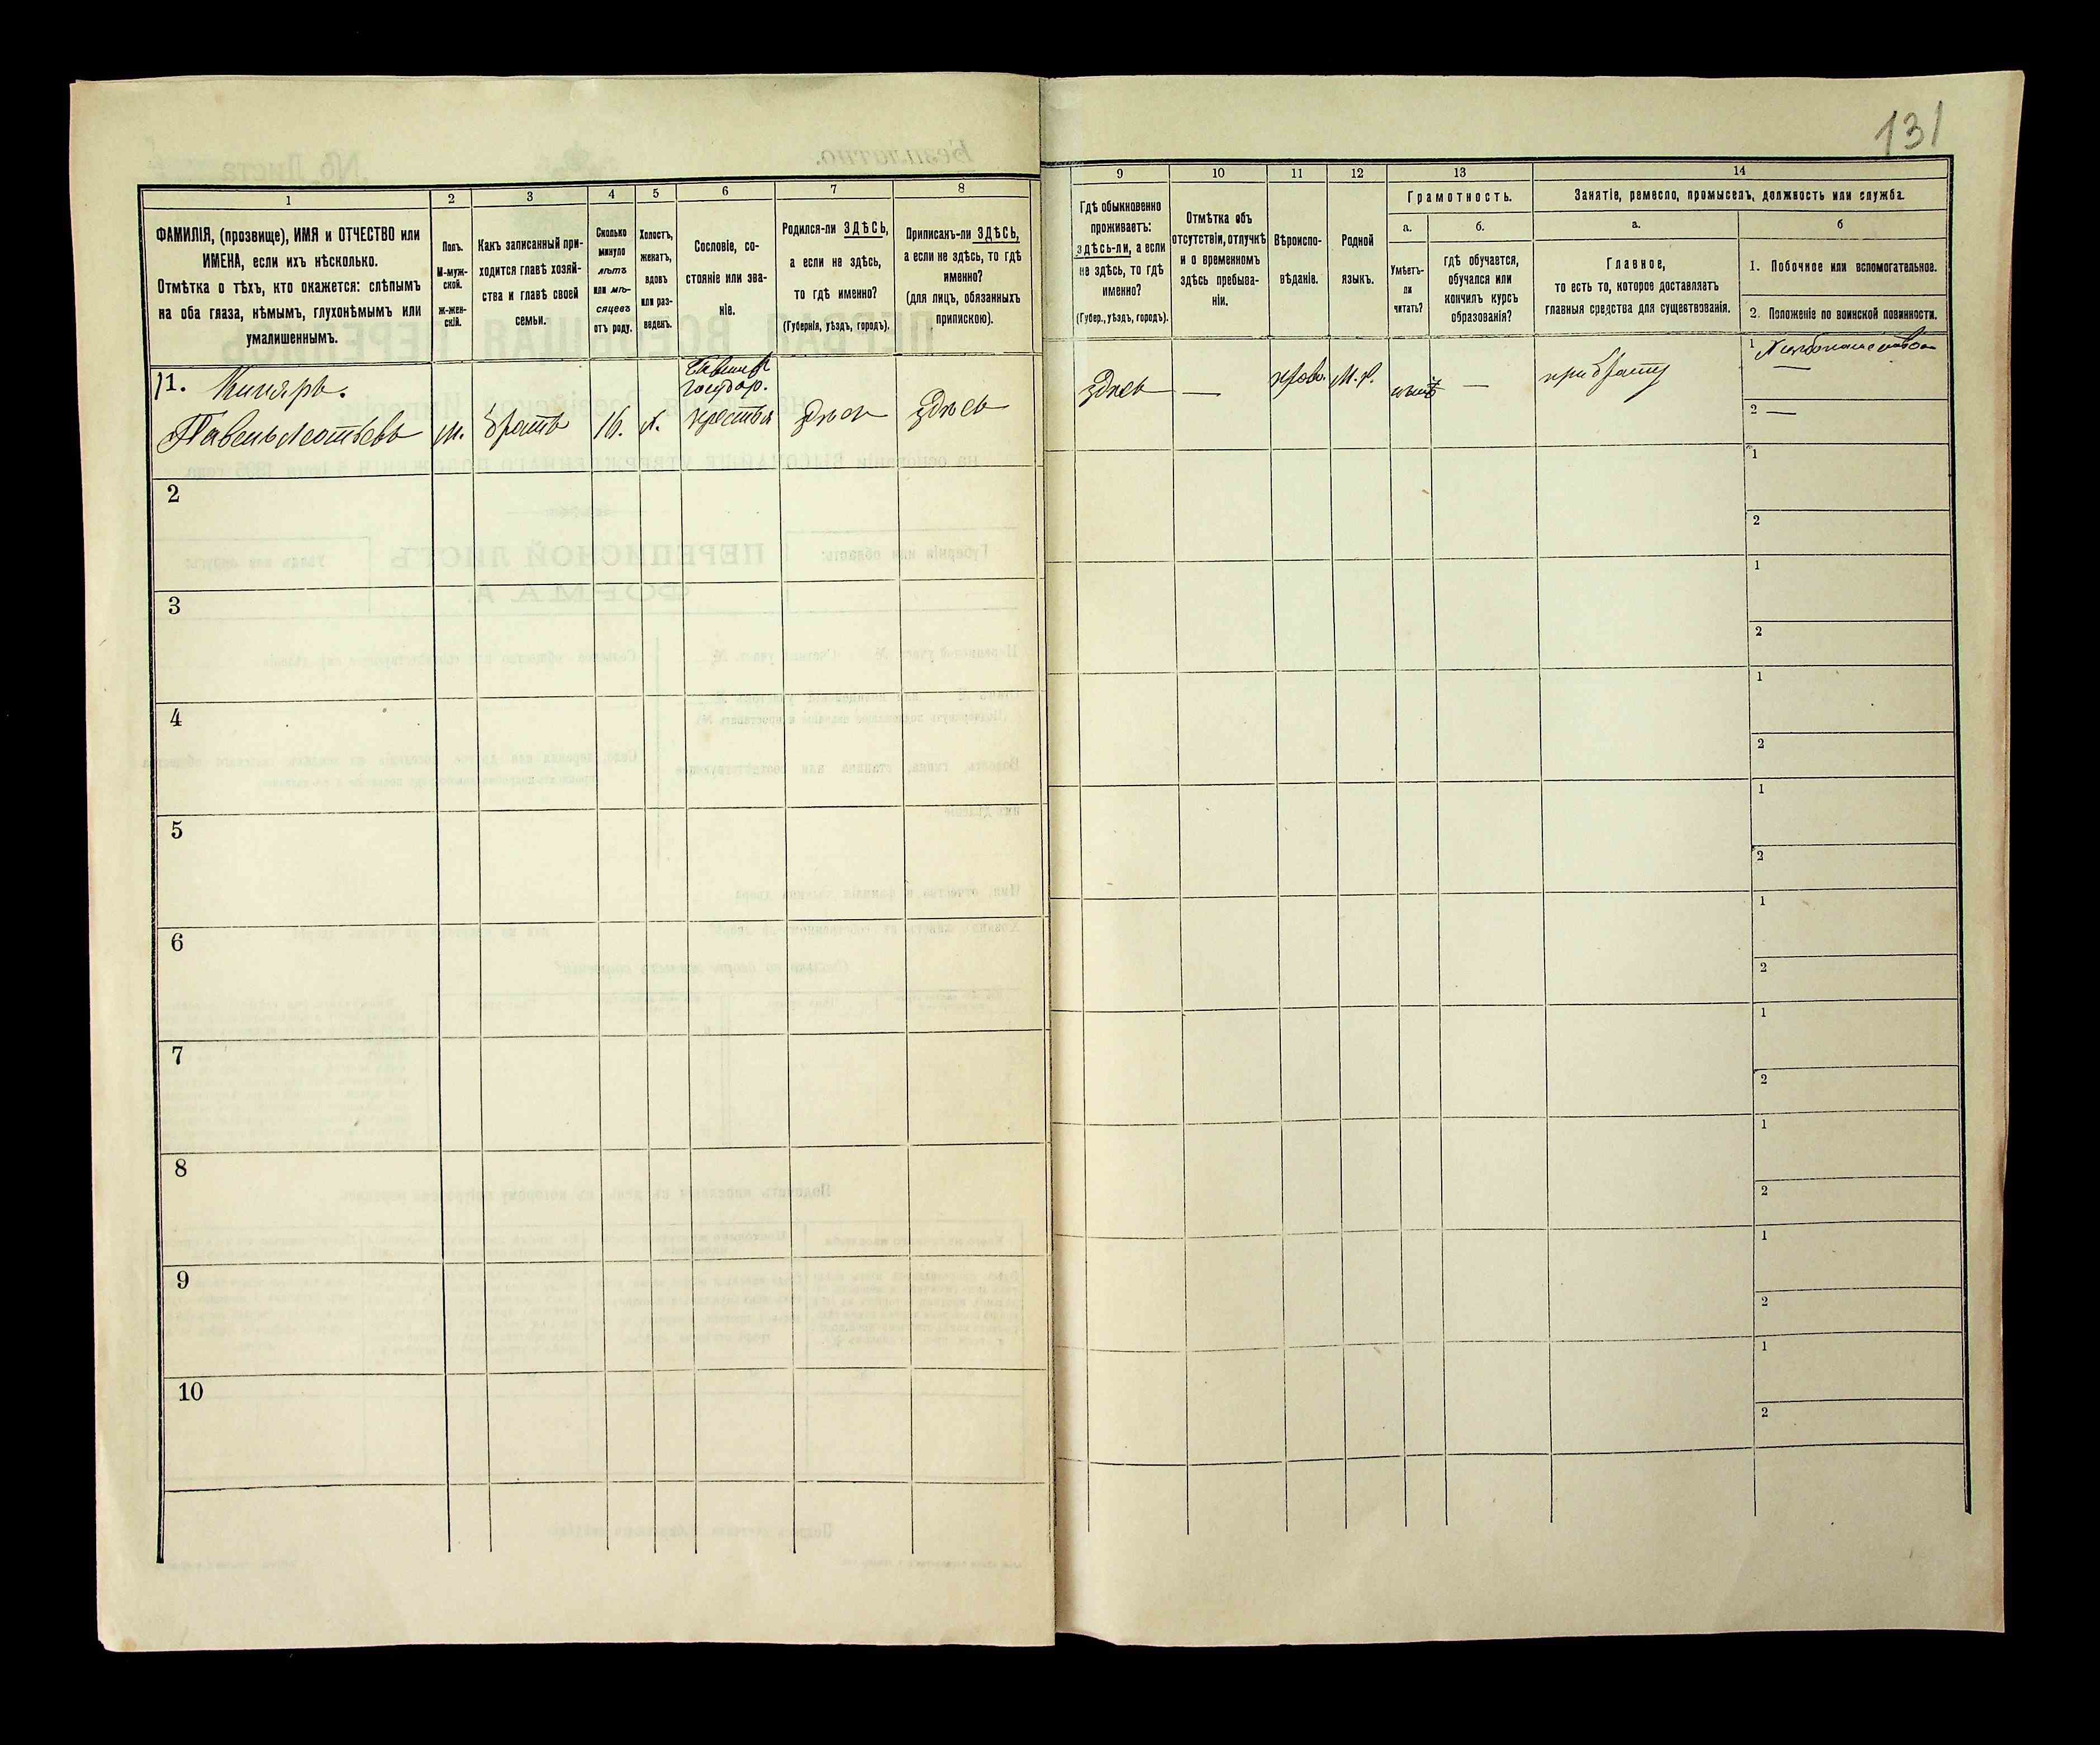 131
1
ФАМИЛІЯ, (прозвище), ИМЯ и ОТЧЕСТВО или
ИМЕНА, если ихъ нѣсколько.
Отмѣтка о тѣхъ, кто окажется: слѣпымъ
на оба глаза, нѣмымъ, глухонѣмымъ или
умалишеннымъ.
2
Полъ.
М-муж-
ской.
Ж-жен-
скій.
3
Какъ записанный при-
ходится главѣ хозяй-
ства и главѣ своей
семьи.
4
Сколько
минуло
лѣтъ
или мѣ-
сяцевъ
отъ роду.
5
Холостъ,
женатъ,
вдовъ
или раз-
веденъ.
6
Сословіе, со-
стояніе или зва-
ніе.
7
Родился-ли ЗДѢСЬ,
а если не здѣсь,
то гдѣ именно?
(Губернія, уѣздъ, городъ).
8
Приписанъ-ли ЗДѢСЬ,
а если не здѣсь, то гдѣ
именно?
(для лицъ, обязанныхъ
припискою).
9
Гдѣ обыкновенно
проживаетъ:
здѣсь-ли, а если
не здѣсь, то гдѣ
именно?
(Губер., уѣздъ, городъ).
10
Отмѣтка объ
отсутствіи, отлучкѣ
и о временномъ
здѣсь пребыва-
ніи.
11
Вѣроиспо-
вѣданіе.
12
Родной
языкъ.
13
Грамотность.
а.
Умѣетъ-
ли
читать?
б.
гдѣ обучается,
обучался или
кончилъ курсъ
образованія?
14
Занятіе, ремесло, промыселъ, должность или служба.
а.
Главное,
то есть то, которое доставляетъ
главныя средства для существованія.
б
1. Побочное или вспомогательное.
2. Положеніе по воинской повинности.
11.
Павелъ Леонтьевъ
м.
братъ
16.
х.
государ.
крестья
здѣсь
здѣсь
здѣсь
—
право.
М. р.
—
при братѣ
1
2 —
2
1
2
3
1
2
4
1
2
5
1
2
6
1
2
7
1
2
8
1
2
9
1
2
10
1
2